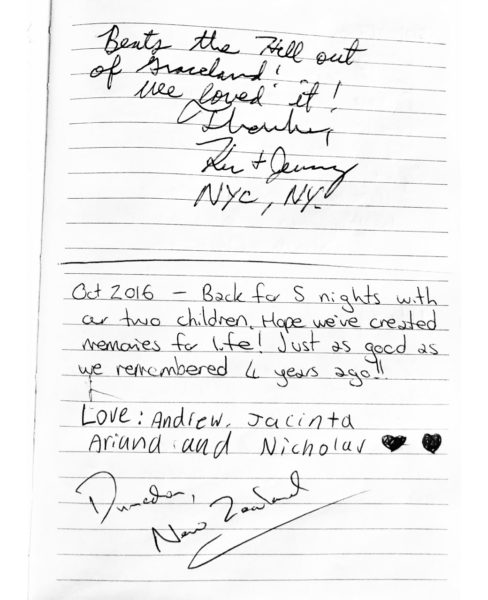 Beats the Hell out
of Graceland!
We loved it!
Thanks,
+ Jenny
NYC, NY.
Oct 2016 – Back for 5 nights with
our two children. Hope we've created
memories for life! Just as good as
we remembered 4 years ago!!
Love: Andrew, Jacinta
Ariana and Nicholas
Dunedin,
New Zealand